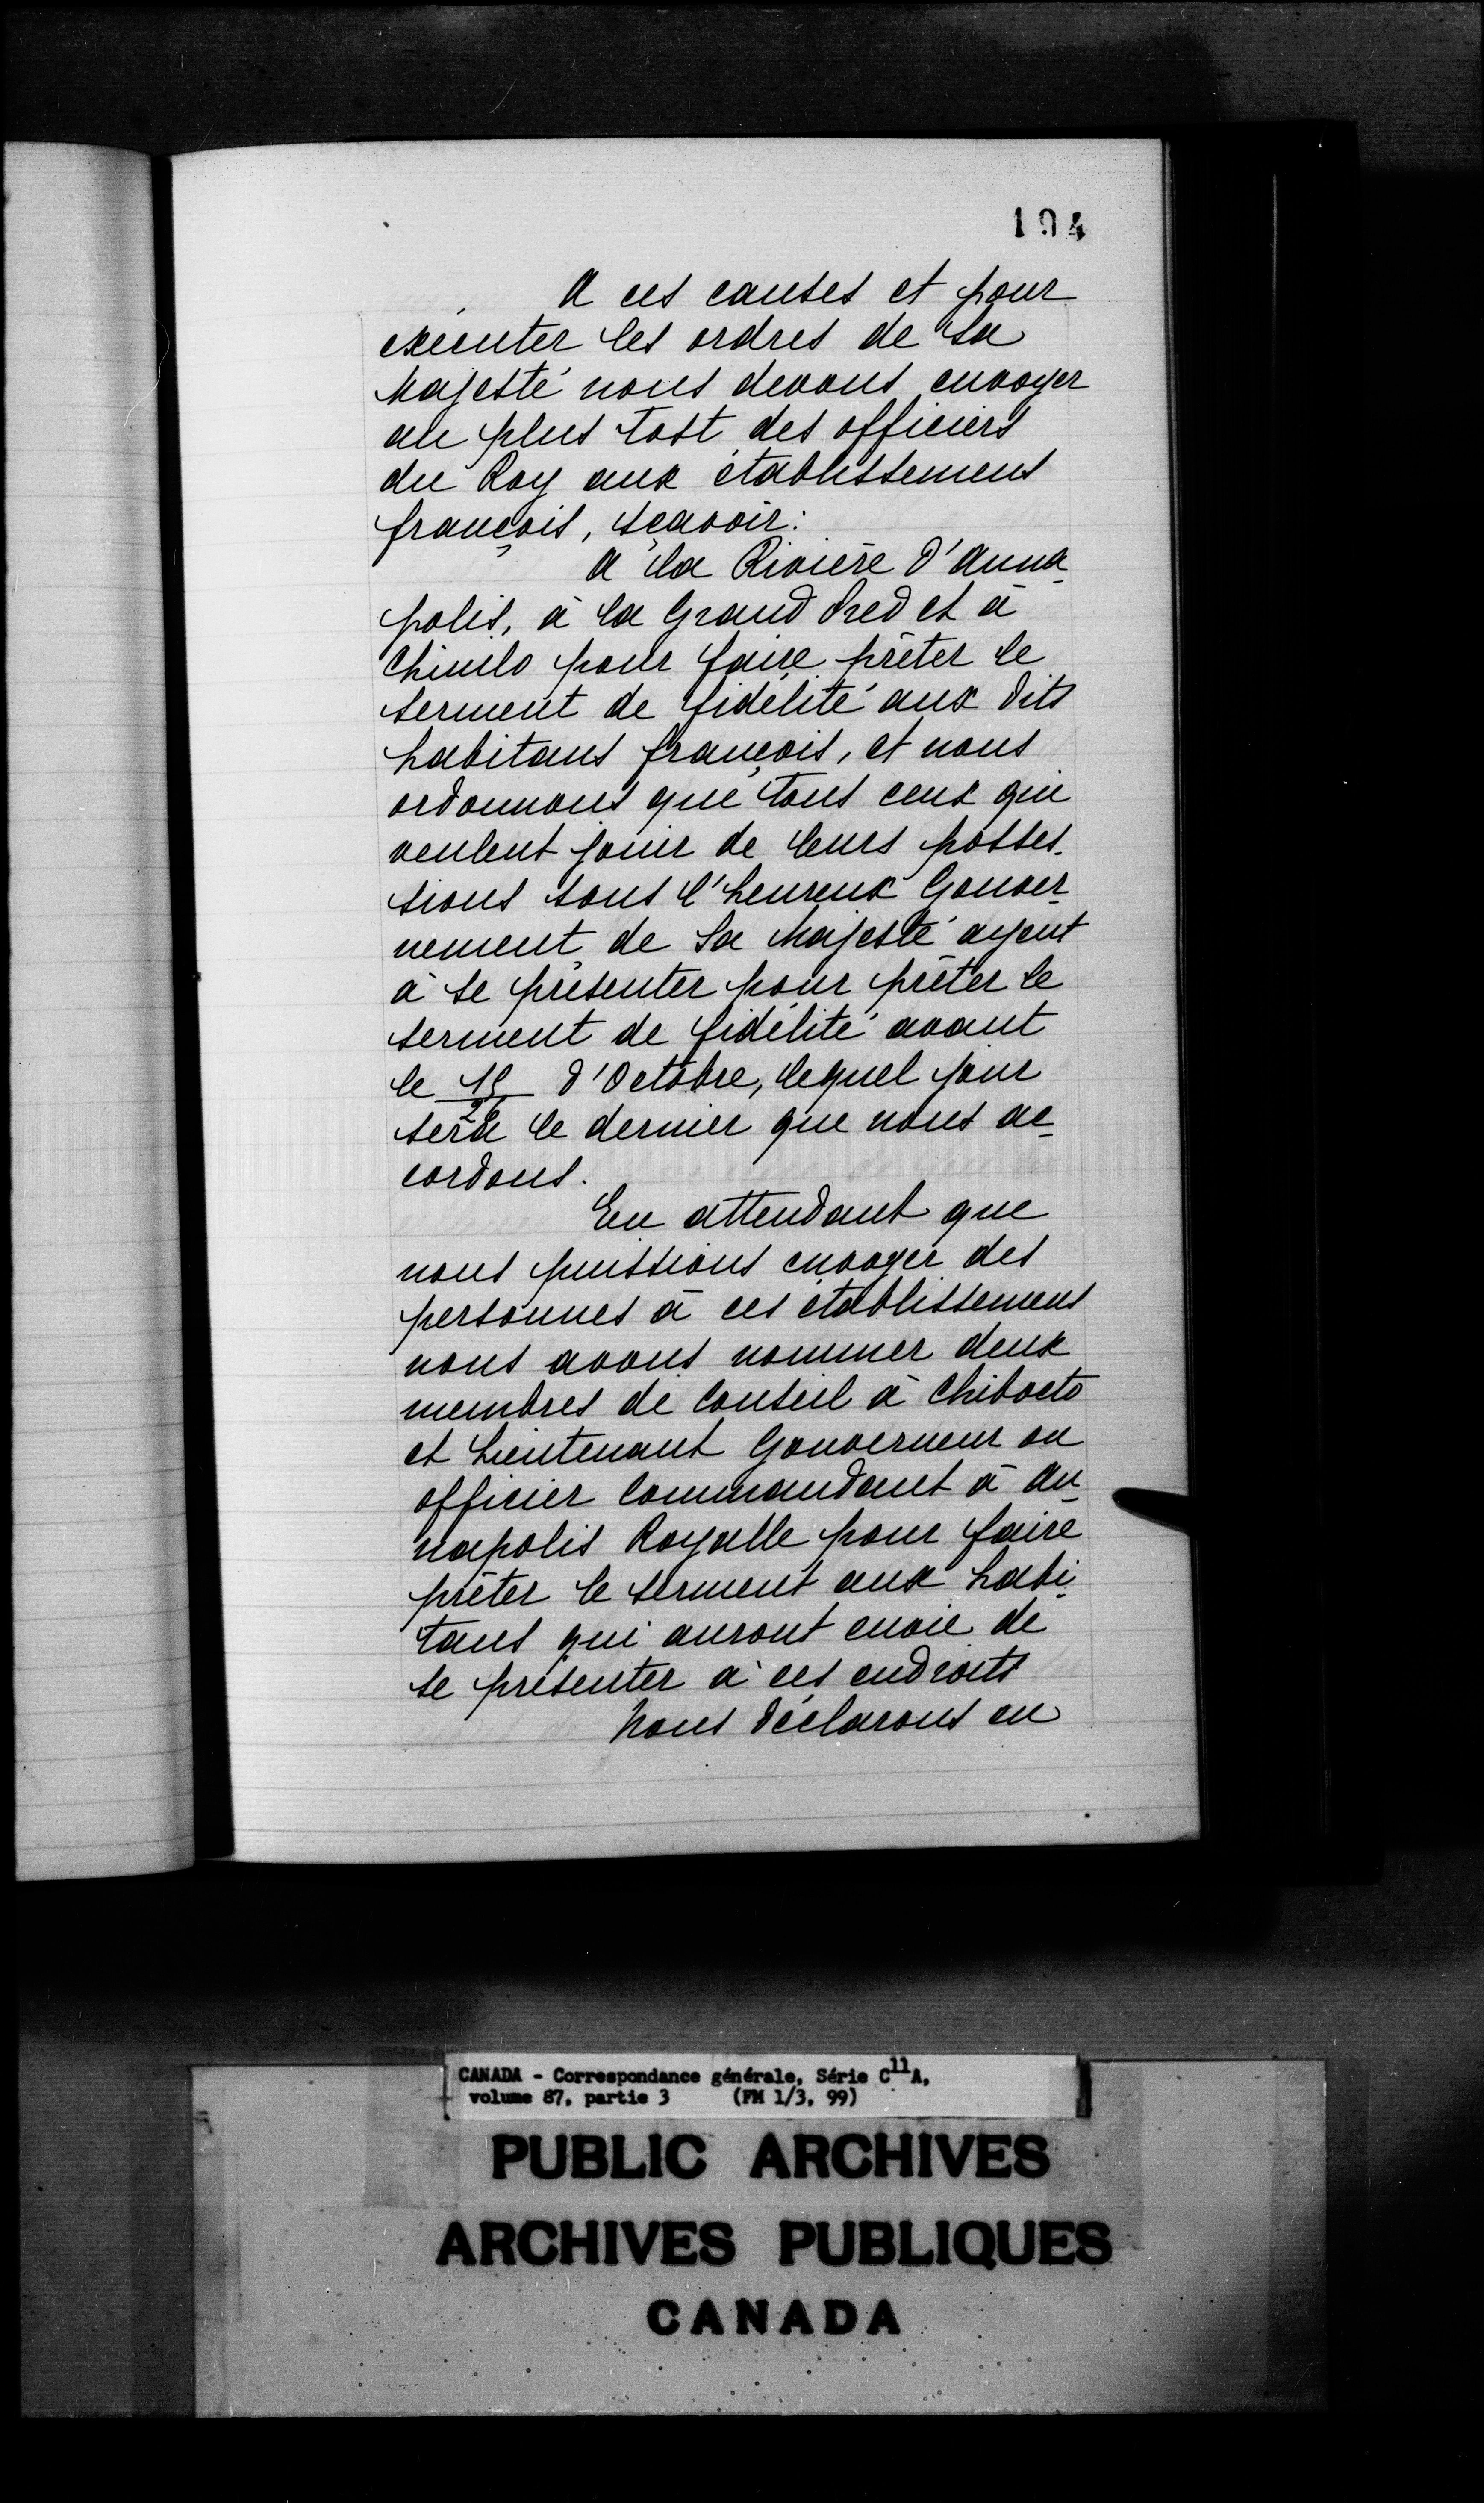 194
A ces causes et pour
executer les ordres de Sa
Majesté nous devons envoyer
au plus tost des officiers
du Roy aux établissemens
françois, sçavoir:
A la Rivière d'Anna-
polis, à la Grand Pred et à
Chinito pour faire prêter le
serment de fidélité aux dits
habitans françois, et nous
ordonnons que tous ceux qui
veulent jouir de leurs posses-
sions sous l'heureux Gouver-
nement de Sa Majesté ayent
à se présenter pour prêter le
serment de fidélité avant
le 15/26 d'Octobre, lequel jour
sera le dernier que nous ac-
cordons.
En attendant que
nous puissions envoyer des
personnes à ces établissemens
nous avons nommer deux
membres de Conseil à Chibocto
et Lieutenant Gouverneur ou
officier Commandant à An-
napolis Royalle pour faire
prêter le serment aux habi-
tans qui auront envie de
se présenter à ces endroits
Nous déclarons en
CANADA - Correspondance générale, Série C11A,
volume 87, partie 3 (FM 1/3, 99)
PUBLIC ARCHIVES
ARCHIVES PUBLIQUES
CANADA